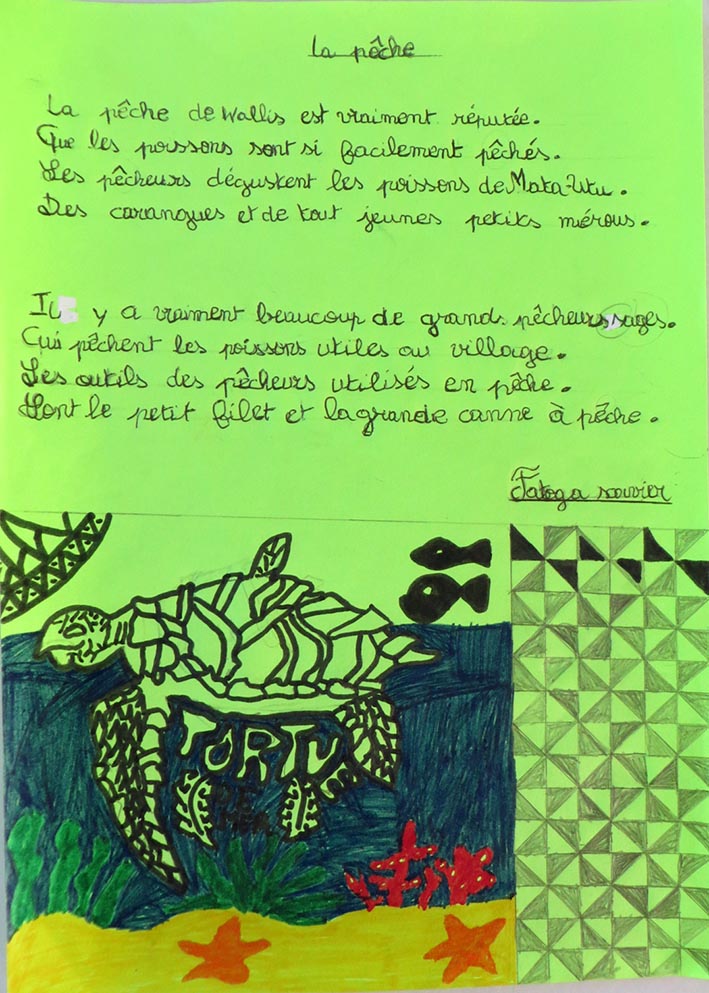 La pêche
La pêche de Wallis est vraiment réputée.
Que les poissons sont si facilement pêchés.
Les pêcheurs dégustent les poissons de Mata-Utu.
Des carangues et de tout jeunes petits mérous.
Il y a vraiment beaucoup de grands pêcheurs sages.
Qui pêchent les poissons utiles au village.
Les outils des pêcheurs utilisés en pêche.
Sont le petit filet et la grande canne à pêche.
TORTU
DE
MER